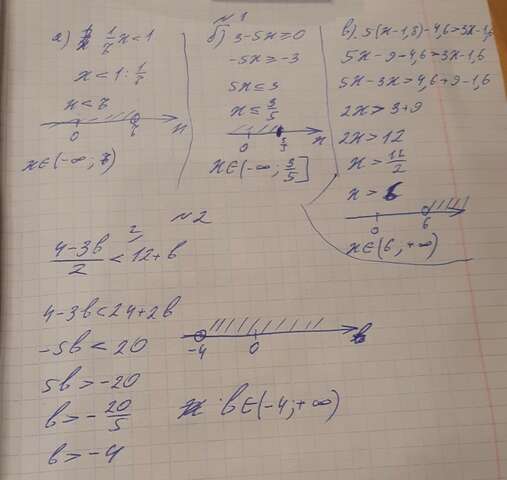 №1
а) 1/7 x < 1
x < 1 : 1/7
x < 7
0 7 x
x ∈ (-∞; 7)
б) 3 - 5x ≥ 0
-5x ≥ -3
5x ≤ 3
x ≤ 3/5
0 3/5 x
x ∈ (-∞; 3/5]
в) 5(x - 1,8) - 4,6 > 3x - 1,6
5x - 9 - 4,6 > 3x - 1,6
5x - 3x > 4,6 + 9 - 1,6
2x > 3 + 9
2x > 12
x > 12/2
x > 6
0 6
x ∈ (6; +∞)
№2
(4 - 3b)/2 < 12 + b
2)
4 - 3b < 24 + 2b
-5b < 20
5b > -20
b > - 20/5
b > -4
-4 0 b
b ∈ (-4; +∞)